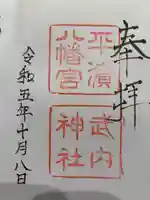 奉拝
平濱
八幡宮
武内
神社
令和五年十月八日